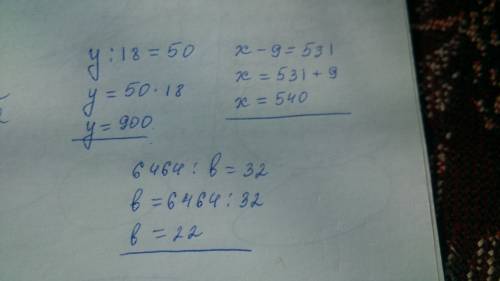 y : 18 = 50
y = 50 · 18
y = 900
x - 9 = 531
x = 531 + 9
x = 540
6464 : b = 32
b = 6464 : 32
b = 22